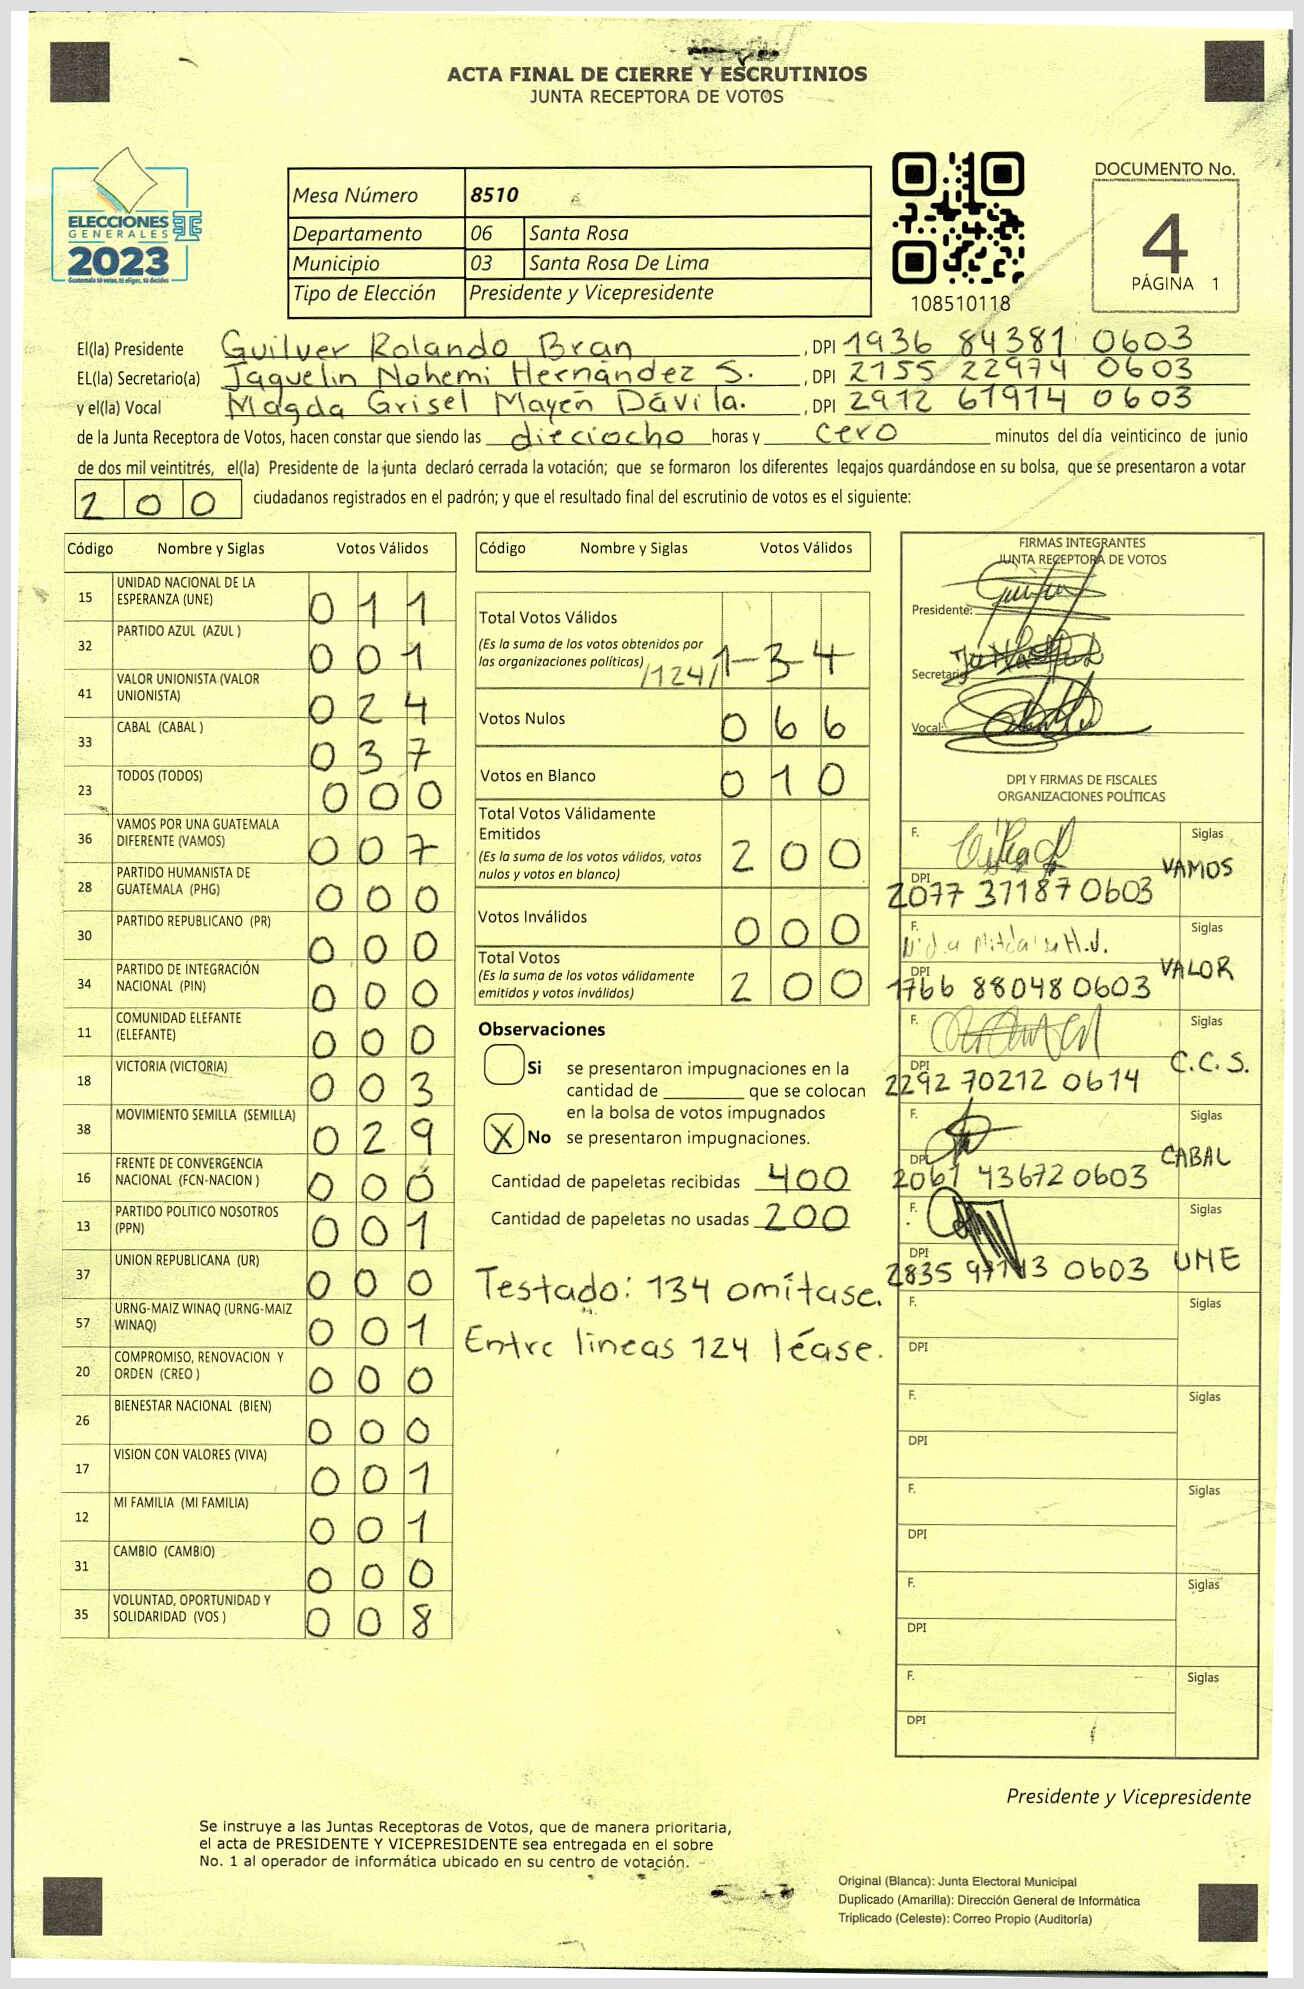 ACTA FINAL DE CIERRE Y ESCRUTINIOS
JUNTA RECEPTORA DE VOTOS
ELECCIONES
GENERALES
2023
Guatemala tú votas, tú eliges, tú decides
Mesa Número 8510
Departamento 06 Santa Rosa
Municipio 03 Santa Rosa De Lima
Tipo de Elección Presidente y Vicepresidente
108510118
DOCUMENTO No.
4
PÁGINA 1
El(la) Presidente Guilver Rolando Bran , DPI 1936 84381 0603
EL(la) Secretario(a) Jaquelin Nohemi Hernández S. , DPI 2155 22974 0603
y el(la) Vocal Magda Grisel Mayén Dávila. , DPI 2912 61914 0603
de la Junta Receptora de Votos, hacen constar que siendo las dieciocho horas y cero minutos del día veinticinco de junio
de dos mil veintitrés, el(la) Presidente de la junta declaró cerrada la votación; que se formaron los diferentes legajos quardándose en su bolsa, que se presentaron a votar
200 ciudadanos registrados en el padrón; y que el resultado final del escrutinio de votos es el siguiente:
Código Nombre y Siglas Votos Válidos
15 UNIDAD NACIONAL DE LA ESPERANZA (UNE) 011
32 PARTIDO AZUL (AZUL ) 001
41 VALOR UNIONISTA (VALOR UNIONISTA) 024
33 CABAL (CABAL ) 037
23 TODOS (TODOS) 000
36 VAMOS POR UNA GUATEMALA DIFERENTE (VAMOS) 007
28 PARTIDO HUMANISTA DE GUATEMALA (PHG) 000
30 PARTIDO REPUBLICANO (PR) 000
34 PARTIDO DE INTEGRACIÓN NACIONAL (PIN) 000
11 COMUNIDAD ELEFANTE (ELEFANTE) 000
18 VICTORIA (VICTORIA) 003
38 MOVIMIENTO SEMILLA (SEMILLA) 029
16 FRENTE DE CONVERGENCIA NACIONAL (FCN-NACION ) 000
13 PARTIDO POLITICO NOSOTROS (PPN) 001
37 UNION REPUBLICANA (UR) 000
57 URNG-MAIZ WINAQ (URNG-MAIZ WINAQ) 001
20 COMPROMISO, RENOVACION Y ORDEN (CREO ) 000
26 BIENESTAR NACIONAL (BIEN) 000
17 VISION CON VALORES (VIVA) 001
12 MI FAMILIA (MI FAMILIA) 001
31 CAMBIO (CAMBIO) 000
35 VOLUNTAD, OPORTUNIDAD Y SOLIDARIDAD (VOS ) 008
Código Nombre y Siglas Votos Válidos
Total Votos Válidos
(Es la suma de los votos obtenidos por
las organizaciones políticas) /124/ 134
Votos Nulos 066
Votos en Blanco 010
Total Votos Válidamente
Emitidos
(Es la suma de los votos válidos, votos
nulos y votos en blanco) 200
Votos Inválidos 000
Total Votos
(Es la suma de los votos válidamente
emitidos y votos inválidos) 200
Observaciones
Si se presentaron impugnaciones en la
cantidad de ________ que se colocan
en la bolsa de votos impugnados
X No se presentaron impugnaciones.
Cantidad de papeletas recibidas 400
Cantidad de papeletas no usadas 200
Testado: 134 omítase.
Entre lineas 124 léase.
FIRMAS INTEGRANTES
JUNTA RECEPTORA DE VOTOS
Presidente:
Secretario
Vocal:
DPI Y FIRMAS DE FISCALES
ORGANIZACIONES POLÍTICAS
F. Siglas
VAMOS
DPI
2077 37187 0603
F. Siglas
VALOR
DPI
1766 88048 0603
F. Siglas
C.C.S.
DPI
2292 70212 0614
F. Siglas
CABAL
DPI
2061 43672 0603
F. Siglas
UNE
DPI
2835 0603
F. Siglas
DPI
F. Siglas
DPI
F. Siglas
DPI
F. Siglas
DPI
F. Siglas
DPI
Presidente y Vicepresidente
Se instruye a las Juntas Receptoras de Votos, que de manera prioritaria,
el acta de PRESIDENTE Y VICEPRESIDENTE sea entregada en el sobre
No. 1 al operador de informática ubicado en su centro de votación.
Original (Blanca): Junta Electoral Municipal
Duplicado (Amarilla): Dirección General de Informática
Triplicado (Celeste): Correo Propio (Auditoría)